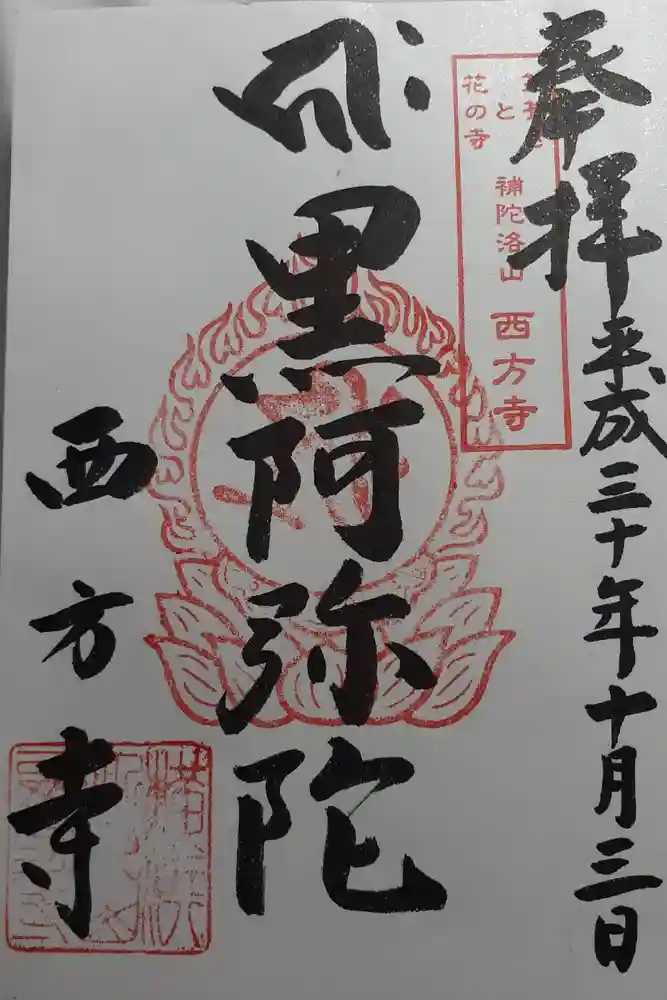 奉拝
平成三十年十月三日
花の寺
補陀洛山 西方寺
黒阿弥陀
西方寺